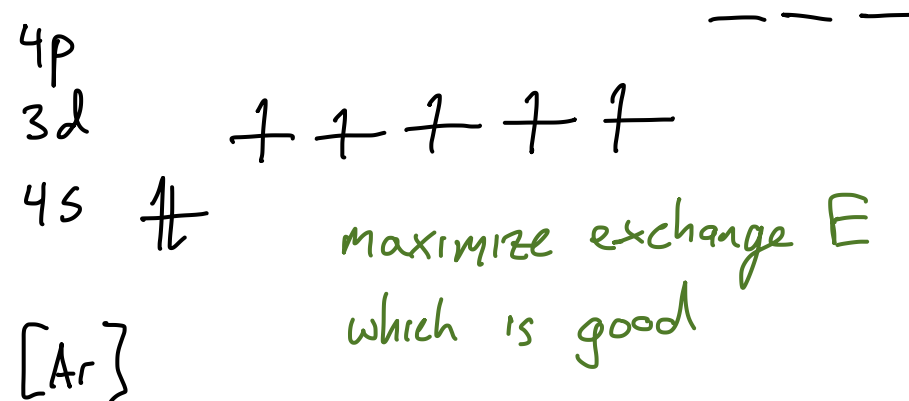 4p
3d
4s
maximize exchange E
which is good
[Ar]